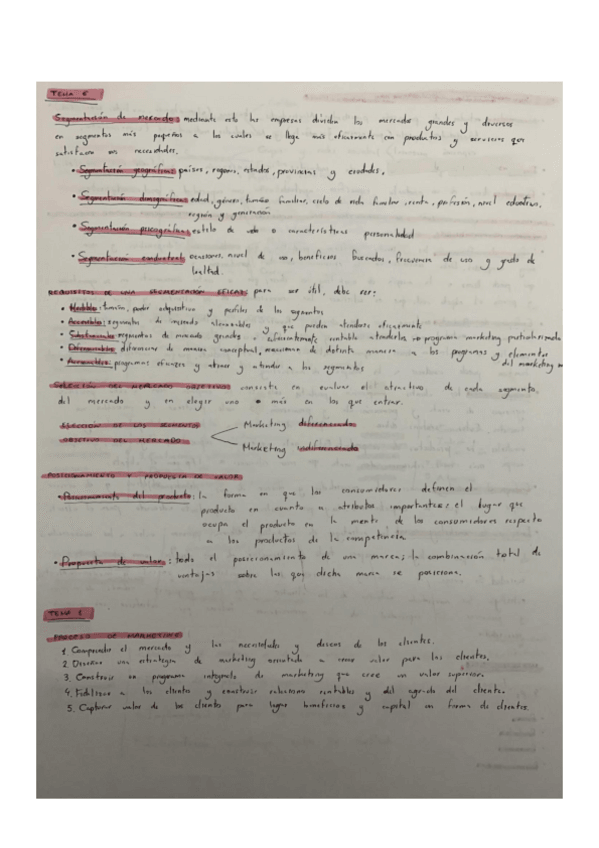 TEMA 5
Segmentación de mercado: mediante esto las empresas dividen los mercados grandes y diversos
en segmentos más pequeños a los cuales se llega más eficazmente con productos y servicios que
satisfacen sus necesidades.
• Segmentación geográfica: países, regiones, estados, provincias y ciudades.
• Segmentación demográfica: edad, género, tamaño familiar, ciclo de vida familiar, renta, profesión, nivel educativo,
religión y generación
• Segmentación psicográfica: estilo de vida o características personalidad
• Segmentación conductual: ocasiones, nivel de uso, beneficios buscados, frecuencia de uso y grado de
lealtad.
REQUISITOS DE UNA SEGMENTACIÓN EFICAZ: para ser útil, debe ser:
• Medible: tamaño, poder adquisitivo y perfiles de los segmentos
• Accesible: segmentos de mercado alcanzables y que puedan atenderse eficazmente
• Sustancial: segmentos de mercado grandes o suficientemente rentable atenderlos programa marketing
• Diferenciable: diferenciar de manera conceptual, reaccionan de distinta manera a los programas y elementos
del marketing
• Accionable: programas eficaces y atraer y atender a los segmentos
SELECCIÓN DEL MERCADO OBJETIVO: consiste en evaluar el atractivo de cada segmento
del mercado y en elegir uno o más en los que entrar.
SELECCIÓN DE LOS SEGMENTOS
OBJETIVO DEL MERCADO
Marketing diferenciado
Marketing indiferenciado
POSICIONAMIENTO Y PROPUESTA DE VALOR
• Posicionamiento del producto: la forma en que los consumidores definen el
producto en cuanto a atributos importantes; el lugar que
ocupa el producto en la mente de los consumidores respecto
a los productos de la competencia.
• Propuesta de valor: todo el posicionamiento de una marca; la combinación total de
ventajas sobre las que dicha marca se posiciona.
TEMA 1
PROCESO DE MARKETING
1 Comprender el mercado y las necesidades y deseos de los clientes.
2 Diseñar una estrategia de marketing orientada a crear valor para los clientes.
3. Construir un programa integrado de marketing que cree un valor superior.
4. Fidelizar a los clientes y construir relaciones rentables y del agrado del cliente.
5. Capturar valor de los clientes para lograr beneficios y capital en forma de clientes.